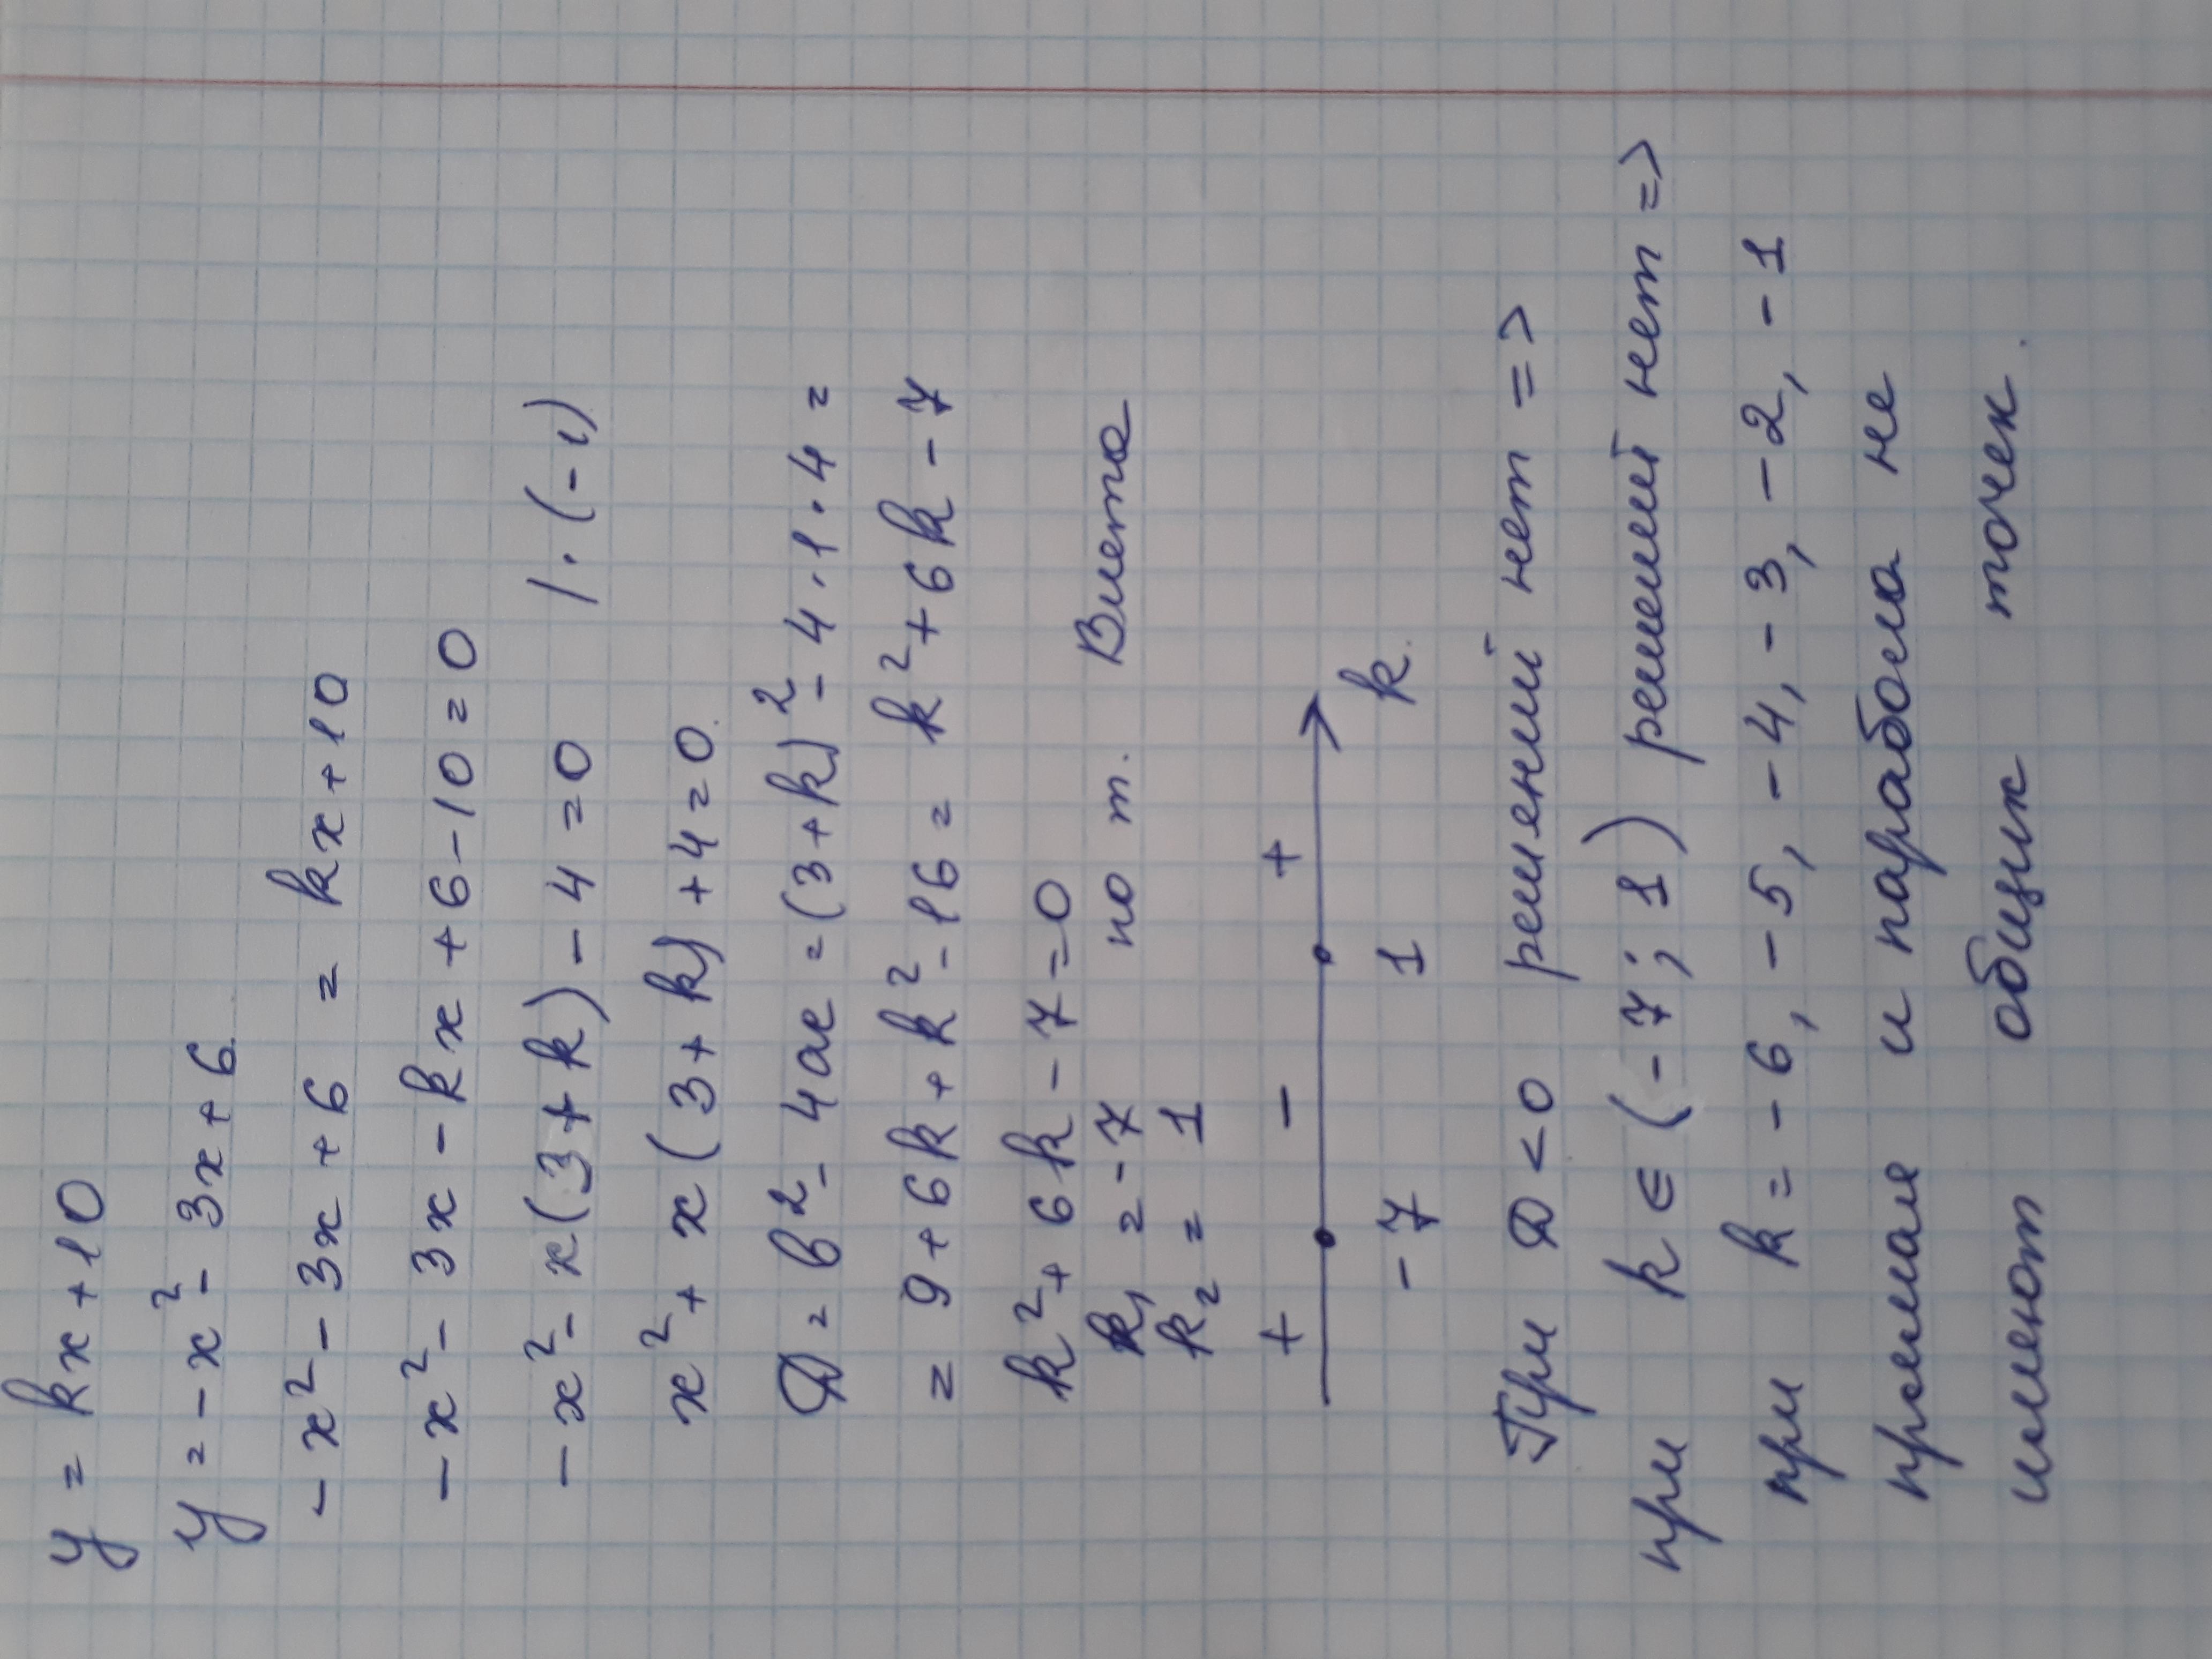 y = kx + 10
y = -x² - 3x + 6
-x² - 3x + 6 = kx + 10
-x² - 3x - kx + 6 - 10 = 0
-x² - x(3 + k) - 4 = 0 /·(-1)
x² + x(3 + k) + 4 = 0
D = b² - 4ac = (3 + k)² - 4·1·4 =
= 9 + 6k + k² - 16 = k² + 6k - 7
k² + 6k - 7 = 0
k₁ = -7 по т. Виета
k₂ = 1
+ - +
-7 1 k
При D < 0 решений нет =>
при k ∈ (-7; 1) решений нет =>
при k = -6, -5, -4, -3, -2, -1
прямая и парабола не
имеют общих точек.